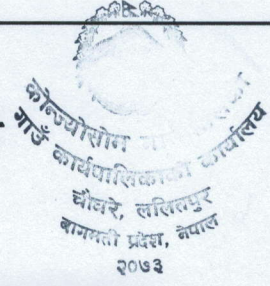 कोन्ज्योसोम गाउँपालिका
गाउँ कार्यपालिकाको कार्यालय
चौघरे, ललितपुर
बागमती प्रदेश, नेपाल
२०७३